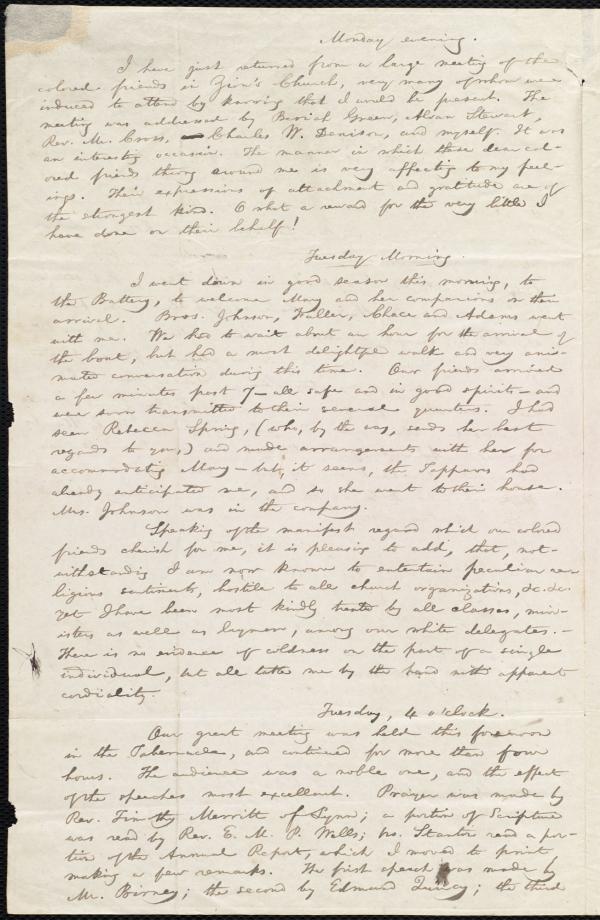 Monday evening.
I have just returned from a large meeting of the
colored friends in Zion's Church, very many of whom were
induced to attend by knowing that I would be present. The
meeting was addressed by Beriah Green, Alvan Stewart,
Rev. Mr. Cross, Charles W. Denison, and myself. It was
an interesting occasion. The manner in which these dear col-
ored friends throng around me is very affecting to my feel-
ings. Their expressions of attachment and gratitude are of
the strongest kind. O what a reward for the very little I
have done on their behalf!
Tuesday Morning.
I went down in good season this morning, to
the Battery, to welcome Mary and her companions on their
arrival. Bros. Johnson, Fuller, Chace and Adams went
with me. We had to wait about an hour for the arrival of
the boat, but had a most delightful walk and very ani-
mated conversation during this time. Our friends arrived
a few minutes past 7 — all safe and in good spirits — and
were soon transmitted to their several quarters. I had
seen Rebecca Spring, (who, by the way, sends her best
regards to you,) and made arrangements with her for
accommodating Mary — but, it seems, the Tappans had
already anticipated me, and so she went to their house.
Mrs. Johnson was in the company.
Speaking of the manifest regard which our colored
friends cherish for me, it is pleasing to add, that, not-
withstanding I am now known to entertain peculiar re-
ligious sentiments, hostile to all church organizations, &c. &c.
yet I have been most kindly treated by all classes, min-
isters as well as laymen, among our white delegates. —
There is no evidence of coldness on the part of a single
individual, but all take me by the hand with apparent
cordiality.
Tuesday, 4 o'clock.
Our great meeting was held this forenoon
in the Tabernacle, and continued for more than four
hours. The audience was a noble one, and the effect
of the speeches most excellent. Prayer was made by
Rev. Timothy Merritt of Lynn; a portion of Scripture
was read by Rev. E. M. P. Wells; bro. Stanton read a por-
tion of the Annual Report, which I moved to print
making a few remarks. The first speech was made by
Mr. Birney; the second by Edmund Quincy; the third